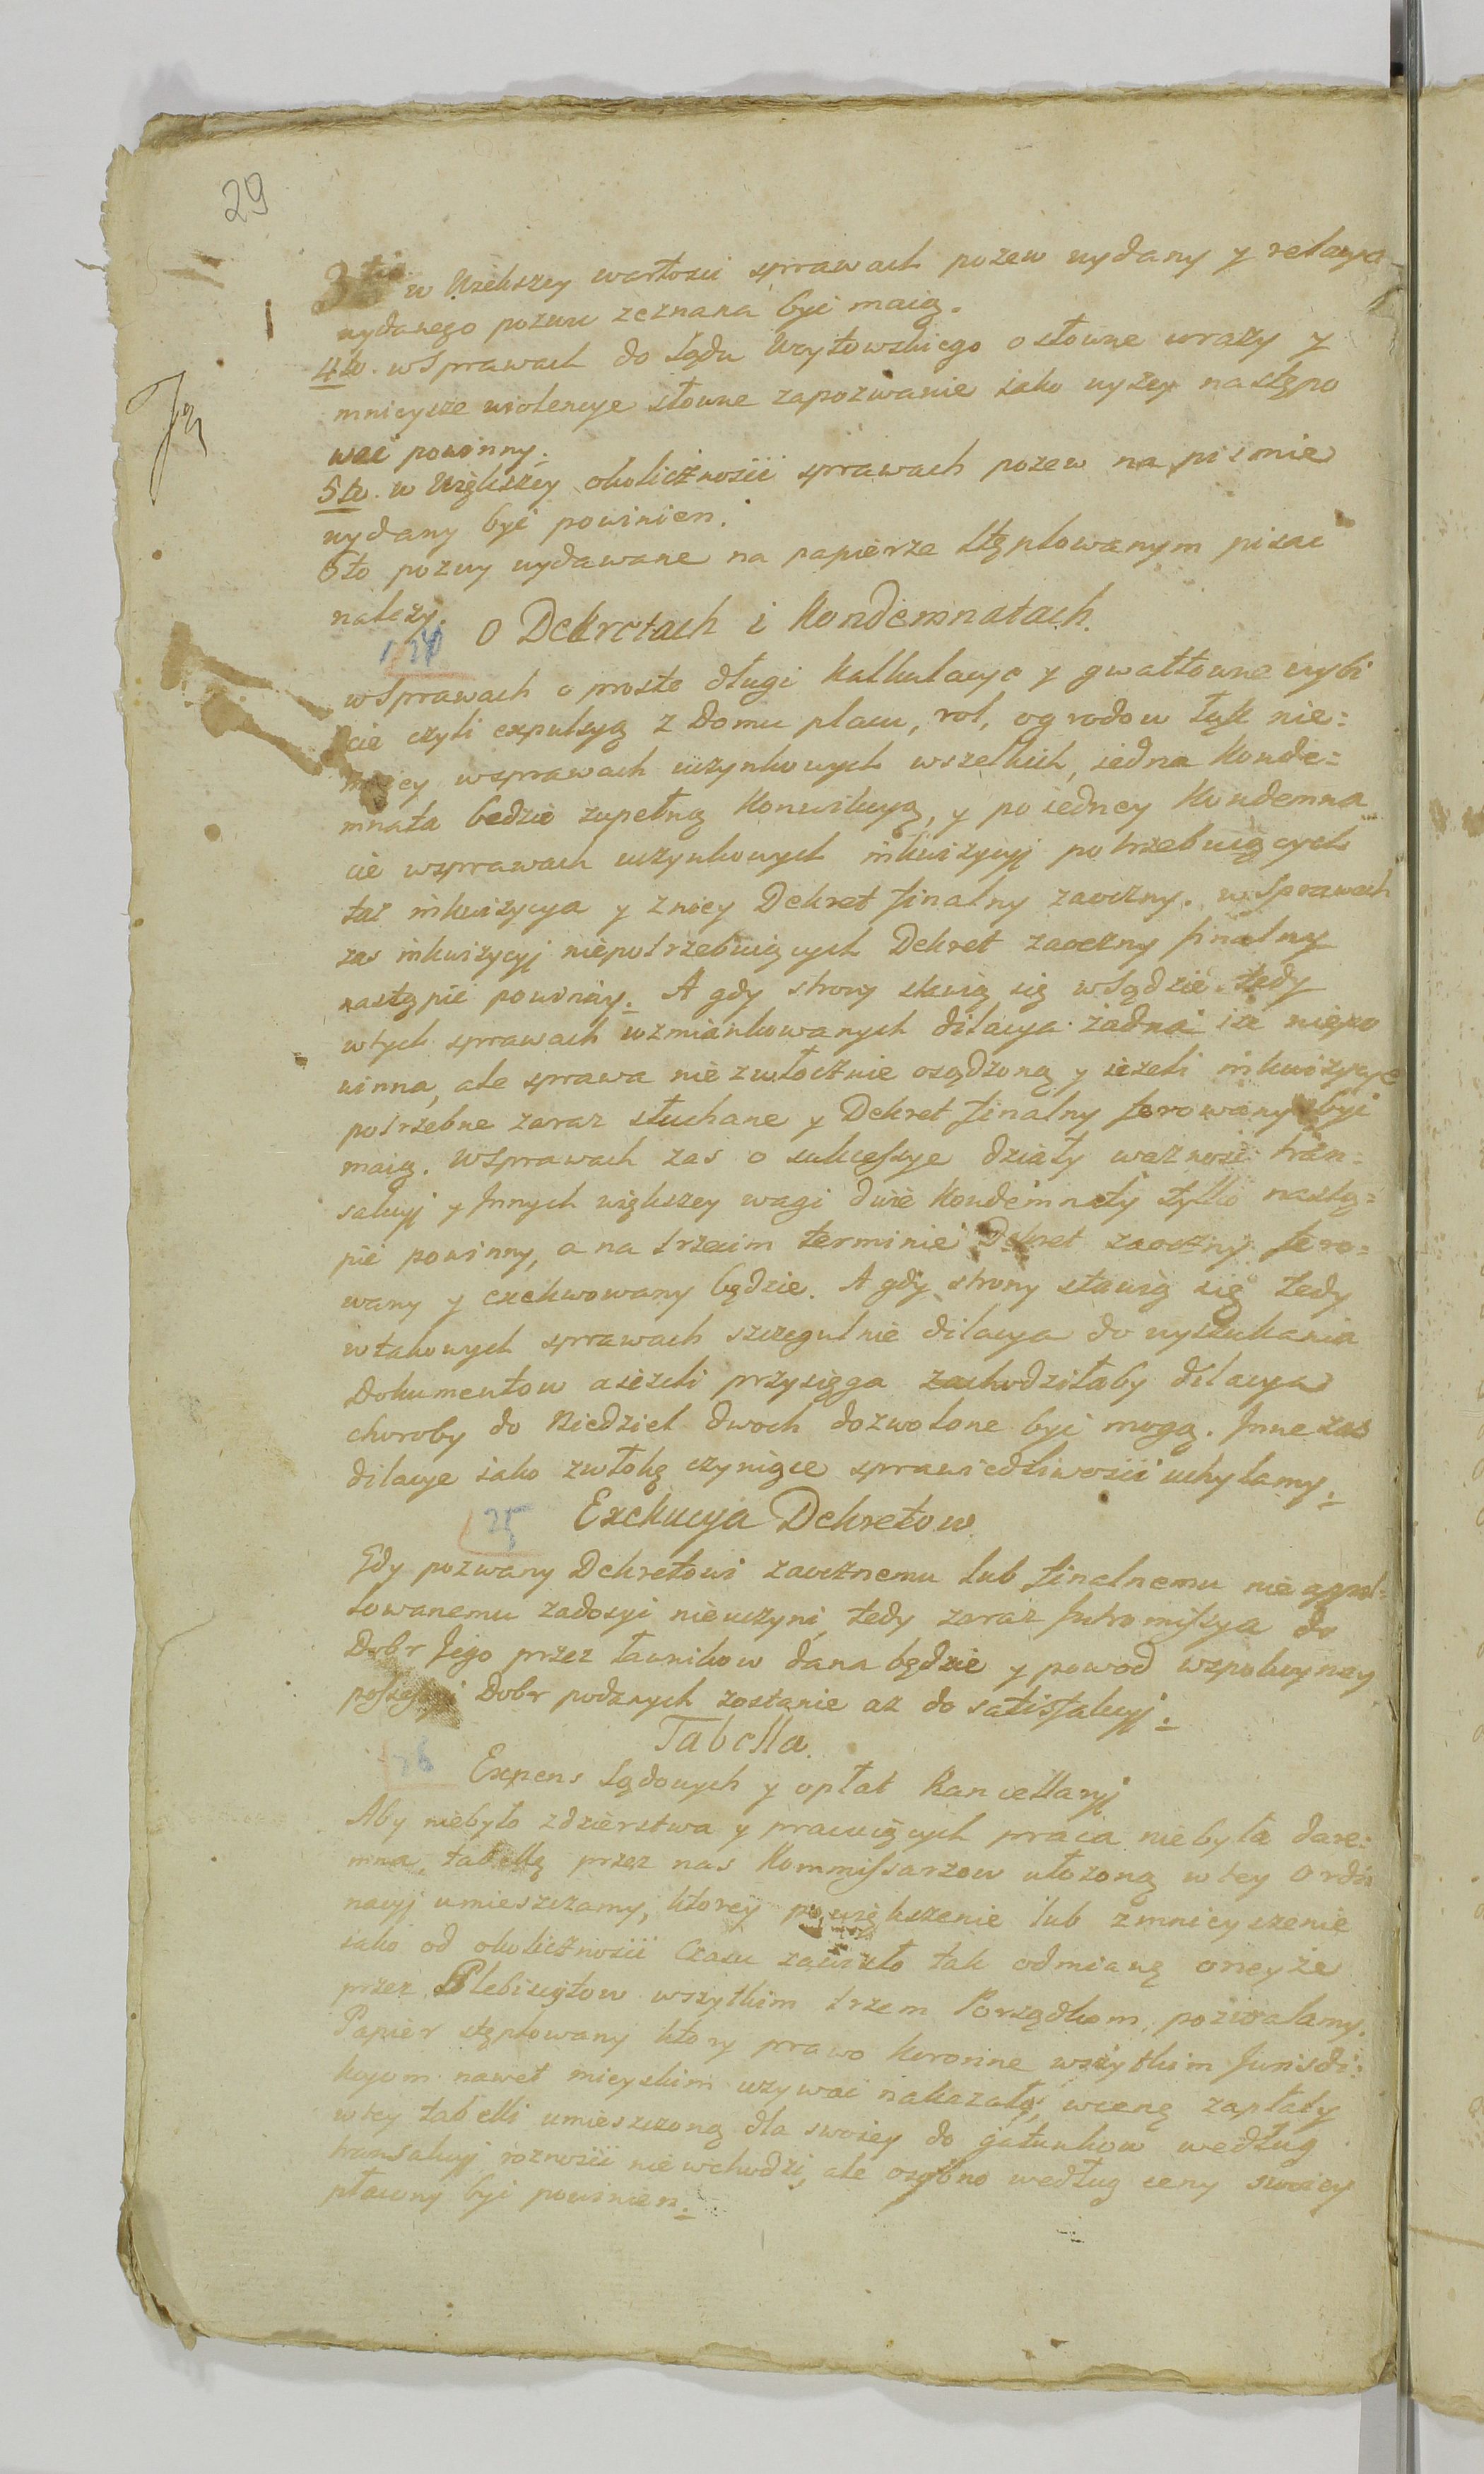 29
3tio w Większey wartosci sprawach pozew wydany y relacya
wydanego pozwu zeznana być maią.
4to. w Sprawach do Sądu Woytowskiego o słowne urazy y
mnieysze wiolencye słowne zapozwanie iako wyzey następo
wać powinny.
5to. w Większey okolicznosci sprawach pozew na pismie
wydany być powinien.
6to pozwy wydawane na papierze stęplowanym pisać
nalezy.
24 O Dekretach i Kondemnatach.
w Sprawach o proste długi kalkulacye y gwałtowne wybi
cie czyli expulsyą z Domu placu, rol, ogrodow łąk nie:
mniey w sprawach uczynkowych wszelkich, iedna Konde=
mnata bedzie zupełną Konwikcyą, y po iedney Kondemna
cie w sprawach uczynkowych inkwizycyi potrzebuiących
taz inkwizycya y z niey Dekret finalny zaoczny. w Sprawach
zas inkwizycyi niepotrzebuiących Dekret zaoczny finalny
nastąpić powinny. A gdy strony stawią się w Sądzie tedy
w tych sprawach wzmiankowanych dilacya zadna iść niepo
winna, ale sprawa niezwłocznie osądzoną y iezeli inkwizycye
potrzebne zaraz słuchane y Dekret finalny ferowany być
maią. W Sprawach zas o sukcessye działy waznosć tran=
sakcyi y Innych większey wagi dwie Kondemnaty tylko nastą=
pić powinny, a na trzecim terminie Dekret zaoczny fero=
wany y exekwowany będzie. A gdy strony stawią się tedy
w takowych sprawach szczegulnie dilacya do wyszukania
Dokumentow a iezeli przysięga zachodziłaby dilacya
choroby do Niedziel dwoch dozwolone być mogą. Inne zas
dilacye iako zwłokę czyniące sprawiedliwosci uchylamy.
25 Exekucyja Dekretow.
Gdy pozwany Dekretowi zaocznemu lub finalnemu nie appel=
lowanemu zadosyć nieuczyni, tedy zaraz Intromissya do
Dobr Jego przez ławnikow dana będzie y powod w spokoyney
possessyi Dobr podanych zostanie az do satisfakcyi.
Tabella.
26 Expens Sądowych y opłat Kancellaryi
Aby niebyło zdzierstwa y pracuiących praca niebyła dare=
mna, tabellę przez nas Kommissarzow ułozoną w tey Ordi
nacyi umieszczamy, ktorey powiększenie lub zmnieyszenie
iako od okolicznosci Czasu zawisło tak odmianę oneyze
przez Plebiscytow wszytkim trzem Porządkom, pozwalamy.
Papier stęplowany ktory prawo koronne wszytkim Jurisdi=
kcyom nawet mieyskim uzywać nakazało, w cenę zapłaty
w tey tabelli umieszczoną dla swoiey do gatunkow według
transakcyi roznosci nie wchodzi, ale osobno według ceny swoiey
płacony być powinien.